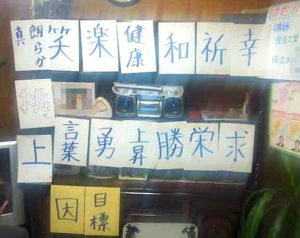 真 朗らか 笑 楽 健康 和 祈 幸
挑
上 言葉 勇 上昇 勝 栄 求
因 目標